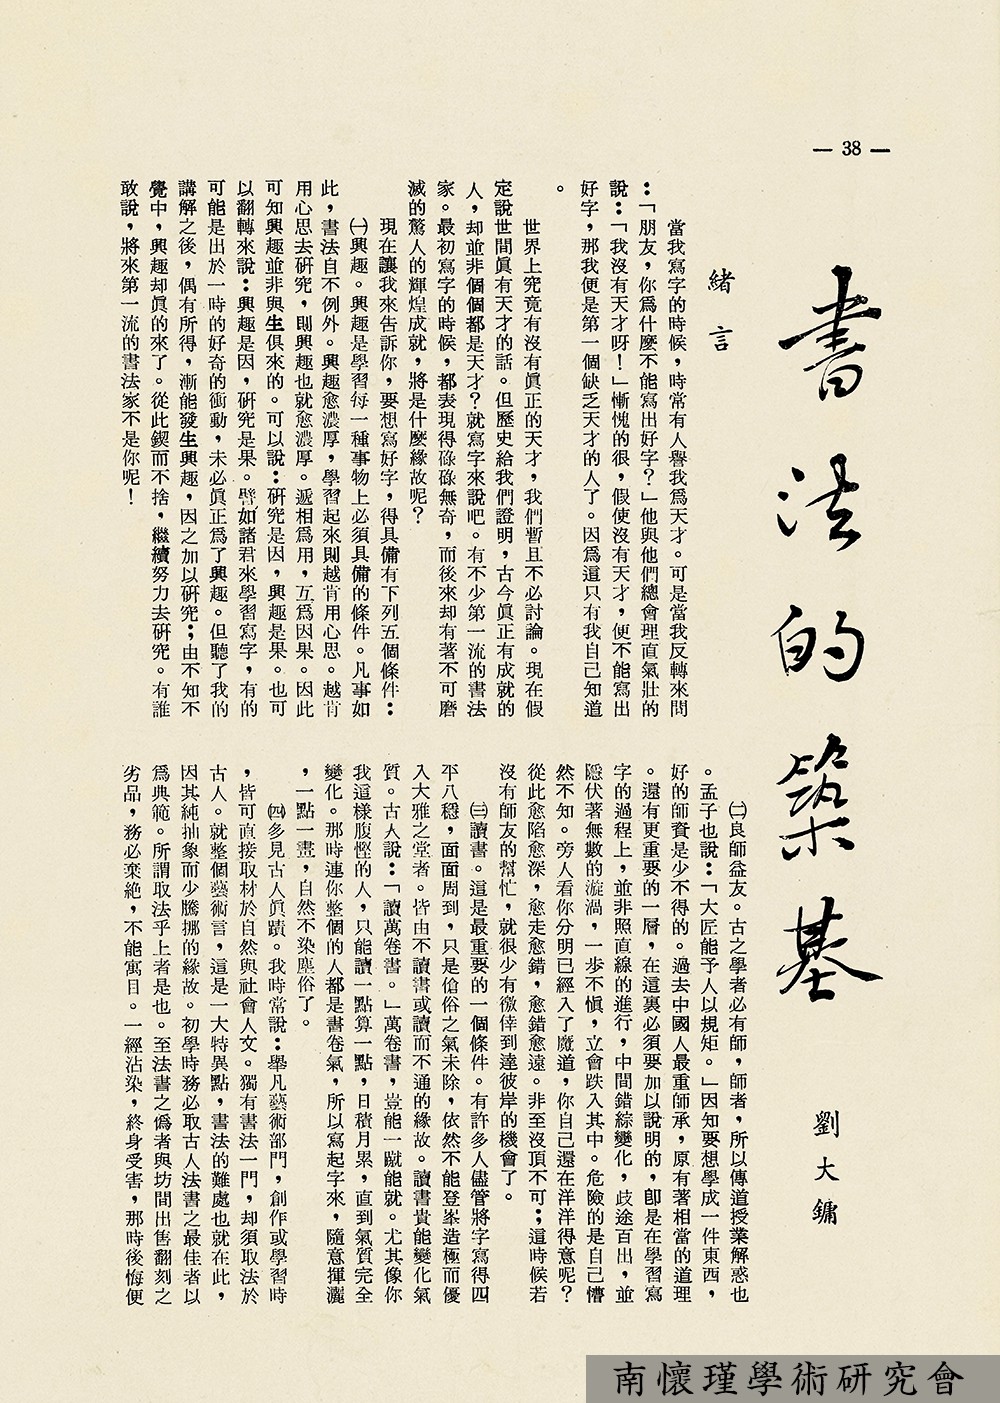 — 38 —
書法的築基
劉大鏞
緒言
當我寫字的時候，時常有人譽我爲天才。可是當我反轉來問
：「朋友，你爲什麼不能寫出好字？」他與他們總會理直氣壯的
說：「我沒有天才呀！」慚愧的很，假使沒有天才，便不能寫出
好字，那我便是第一個缺乏天才的人了。因爲這只有我自己知道
。
世界上究竟有沒有眞正的天才，我們暫且不必討論。現在假
定說世間眞有天才的話。但歷史給我們證明，古今眞正有成就的
人，却並非個個都是天才？就寫字來說吧。有不少第一流的書法
家。最初寫字的時候，都表現得碌碌無奇，而後來却有著不可磨
滅的驚人的輝煌成就，將是什麼緣故呢？
現在讓我來告訴你，要想寫好字，得具備有下列五個條件：
㈠興趣。興趣是學習每一種事物上必須具備的條件。凡事如
此，書法自不例外。興趣愈濃厚，學習起來則越肯用心思。越肯
用心思去研究，則興趣也就愈濃厚。遞相爲用，互爲因果。因此
可知興趣並非與生俱來的。可以說：研究是因，興趣是果。也可
以翻轉來說：興趣是因，研究是果。譬如諸君來學習寫字，有的
可能是出於一時的好奇的衝動，未必眞正爲了興趣。但聽了我的
講解之後，偶有所得，漸能發生興趣，因之加以研究；由不知不
覺中，興趣却眞的來了。從此鍥而不捨，繼續努力去研究。有誰
敢說，將來第一流的書法家不是你呢！
㈡良師益友。古之學者必有師，師者，所以傳道授業解惑也
。孟子也說：「大匠能予人以規矩。」因知要想學成一件東西，
好的師資是少不得的。過去中國人最重師承，原有著相當的道理
。還有更重要的一層，在這裏必須要加以說明的，卽是在學習寫
字的過程上，並非照直線的進行，中間錯綜變化，歧途百出，並
隱伏著無數的漩渦，一步不愼，立會跌入其中。危險的是自己懵
然不知。旁人看你分明已經入了魔道，你自己還在洋洋得意呢？
從此愈陷愈深，愈走愈錯，愈錯愈遠。非至沒頂不可；這時候若
沒有師友的幫忙，就很少有徼倖到達彼岸的機會了。
㈢讀書。這是最重要的一個條件。有許多人儘管將字寫得四
平八穩，面面周到，只是傖俗之氣未除，依然不能登峯造極而優
入大雅之堂者。皆由不讀書或讀而不通的緣故。讀書貴能變化氣
質。古人說：「讀萬卷書。」萬卷書，豈能一蹴能就。尤其像你
我這樣腹慳的人，只能讀一點算一點，日積月累，直到氣質完全
變化。那時連你整個的人都是書卷氣，所以寫起字來，隨意揮灑
，一點一畫，自然不染塵俗了。
㈣多見古人眞蹟。我時常說：舉凡藝術部門，創作或學習時
，皆可直接取材於自然與社會人文。獨有書法一門，却須取法於
古人。就整個藝術言，這是一大特異點，書法的難處也就在此，
因其純抽象而少騰挪的緣故。初學時務必取古人法書之最佳者以
爲典範。所謂取法乎上者是也。至法書之僞者與坊間出售翻刻之
劣品，務必棄絶，不能寓目。一經沾染，終身受害，那時後悔便
南懷瑾學術研究會